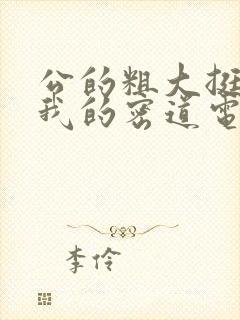 公的粗大挺
我的密道电
李伶